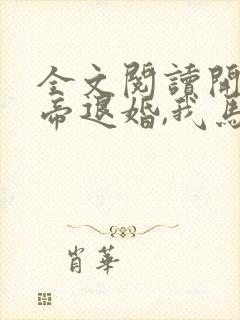 全文閱讀開
帝退婚,我馬
肖華